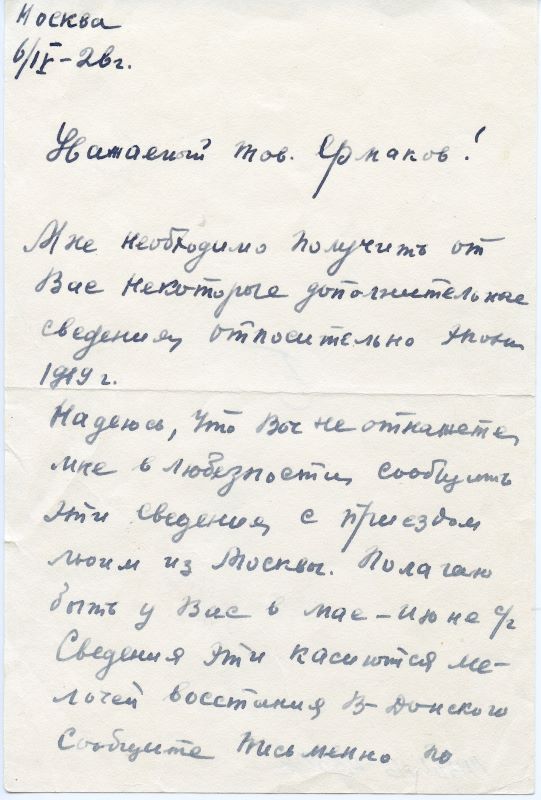 Москва
6/IV-26г.
Уважаемый тов. Ермаков!
Мне необходимо получить от
Вас некоторые дополнительные
сведения относительно эпохи
1919 г.
Надеюсь, что Вы не откажете
мне в любезности сообщить
эти сведения с приездом
моим из Москвы. Полагаю
быть у Вас в мае – июне с/г
Сведения эти касаются ме-
лочей восстания В-Донского
Сообщите письменно по